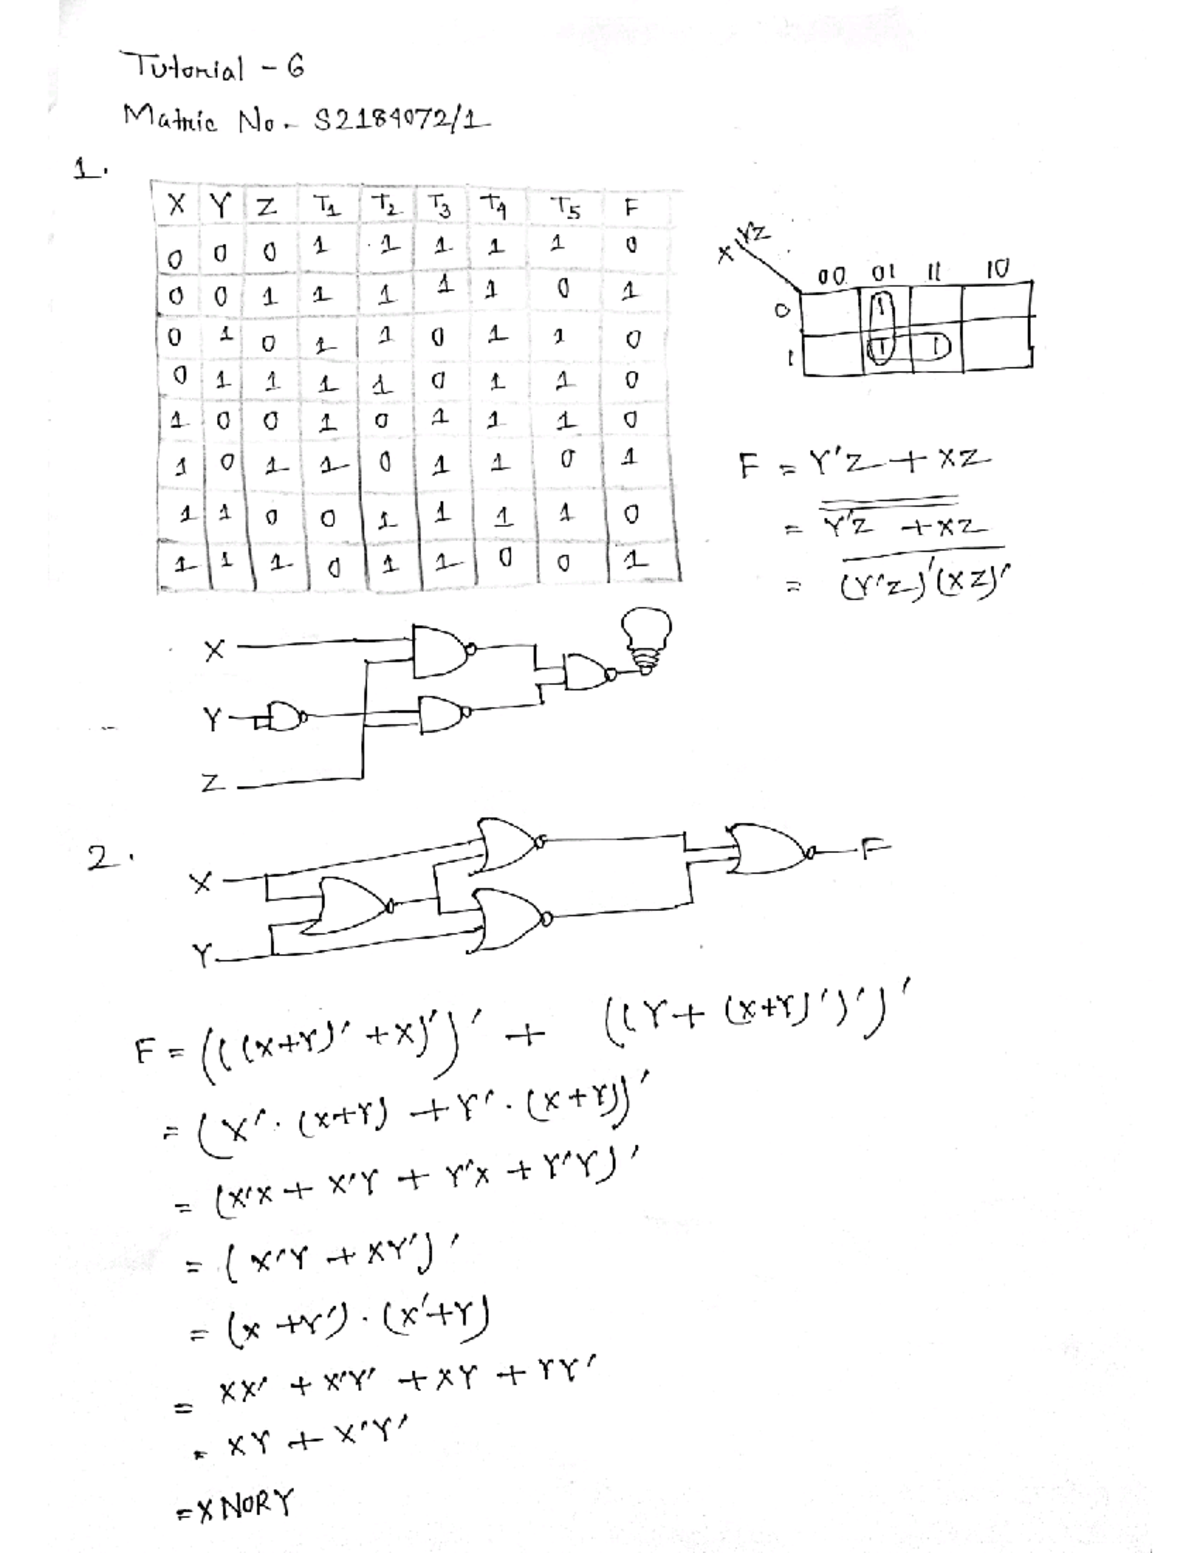 Tutorial - 6
Matric No - S2184072/1
1.
X Y Z T1 T2 T3 T4 T5 F
0 0 0 1 1 1 1 1 0
0 0 1 1 1 1 1 0 1
0 1 0 1 1 0 1 1 0
0 1 1 1 1 0 1 1 0
1 0 0 1 0 1 1 1 0
1 0 1 1 0 1 1 0 1
1 1 0 0 1 1 1 1 0
1 1 1 0 1 1 0 0 1
X YZ
00 01 11 10
0 1
1 1 1
F = Y'Z + XZ
= Y'Z + XZ
= (Y'Z)'(XZ)'
X
Y
Z
2.
X
Y
F
F = (((X+Y)' + X)')' + ((Y + (X+Y)')')'
= (X'. (X+Y) + Y'. (X+Y))'
= (X'X + X'Y + Y'X + Y'Y)'
= (X'Y + XY')'
= (X + Y') . (X'+Y)
= XX' + X'Y' + XY + YY'
= XY + X'Y'
= X NOR Y